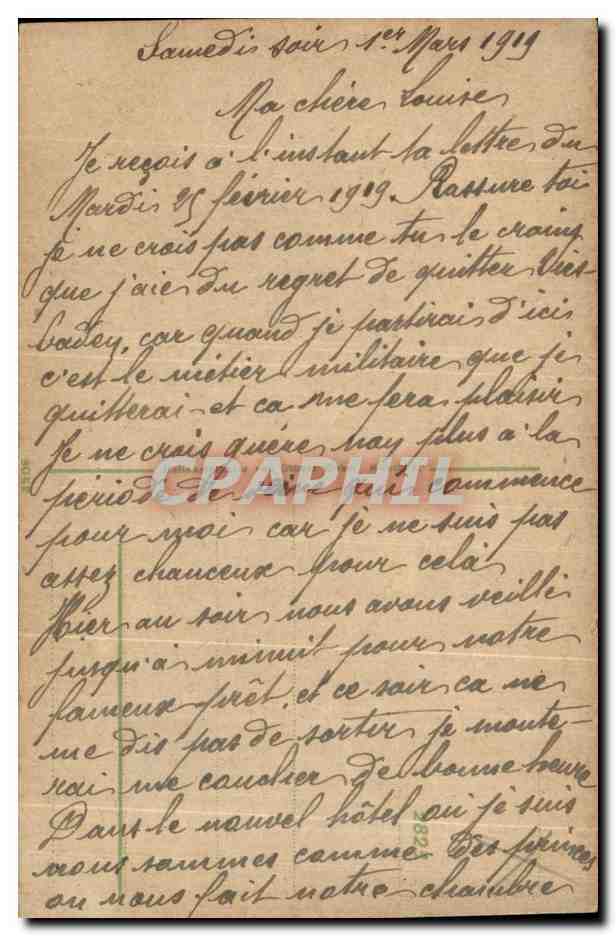 Samedi soir 1er Mars 1919
Ma chére Louise
Je reçois à l'instant ta lettre du
Mardi 25 février 1919. Rassure toi
je ne crois pas comme tu le crains
que j'aie du regret de quitter Vies-
baden, car quand je partirai d'ici
c'est le métier militaire que je
quitterai et ca me fera plaisir
Je ne crois guére non plus à la
période de qui commence
pour moi car je ne suis pas
assez chanceux pour celà
Hier au soir nous avons veillé
jusqu'à minuit pour notre
fameux prêt, et ce soir ca ne
me dis pas de sortir je monte-
rai me coucher de bonne heure
Dans le nouvel hôtel où je suis
nous sommes comme des princes
on nous fait notre chambre
CPAPHIL
2824